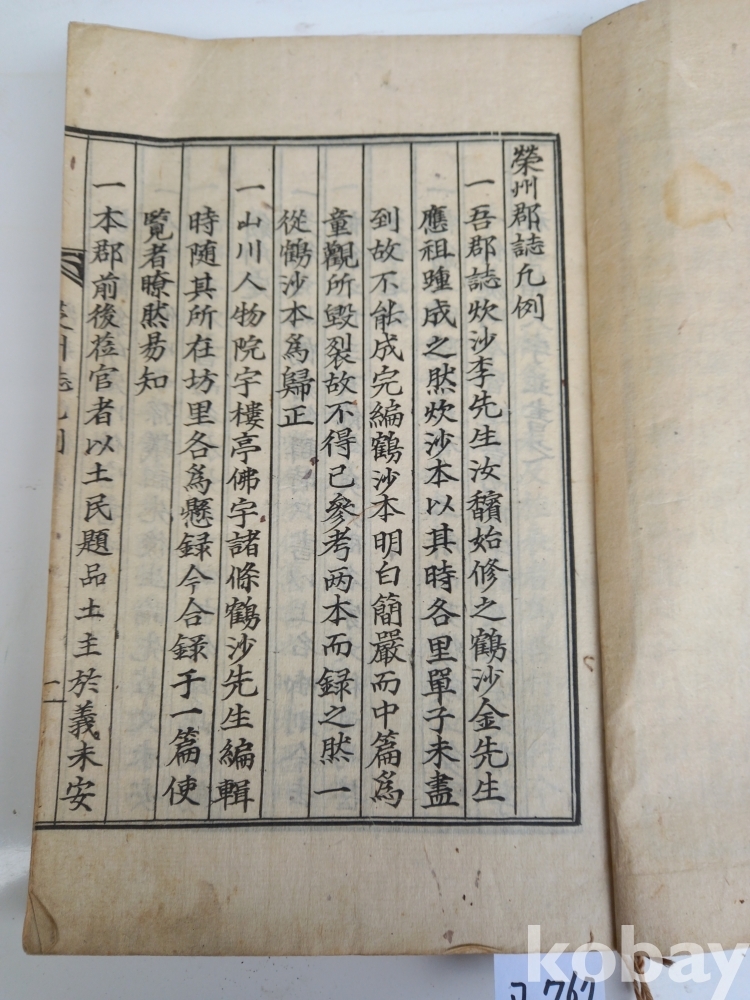 榮州郡誌凡例
一吾郡誌炊沙李先生汝馪始修之鶴沙金先生
應祖踵成之然炊沙本以其時各里單子未盡
到故不能成完編鶴沙本明白簡嚴而中篇為
童觀所毀裂故不得已參考两本而録之然一
從鶴沙本為歸正
一山川人物院宇樓亭佛宇諸條鶴沙先生編輯
時随其所在坊里各為懸録今合録于一篇使
覽者瞭然易知
一本郡前後莅官者以土民題品土主於義未安
一
kobay